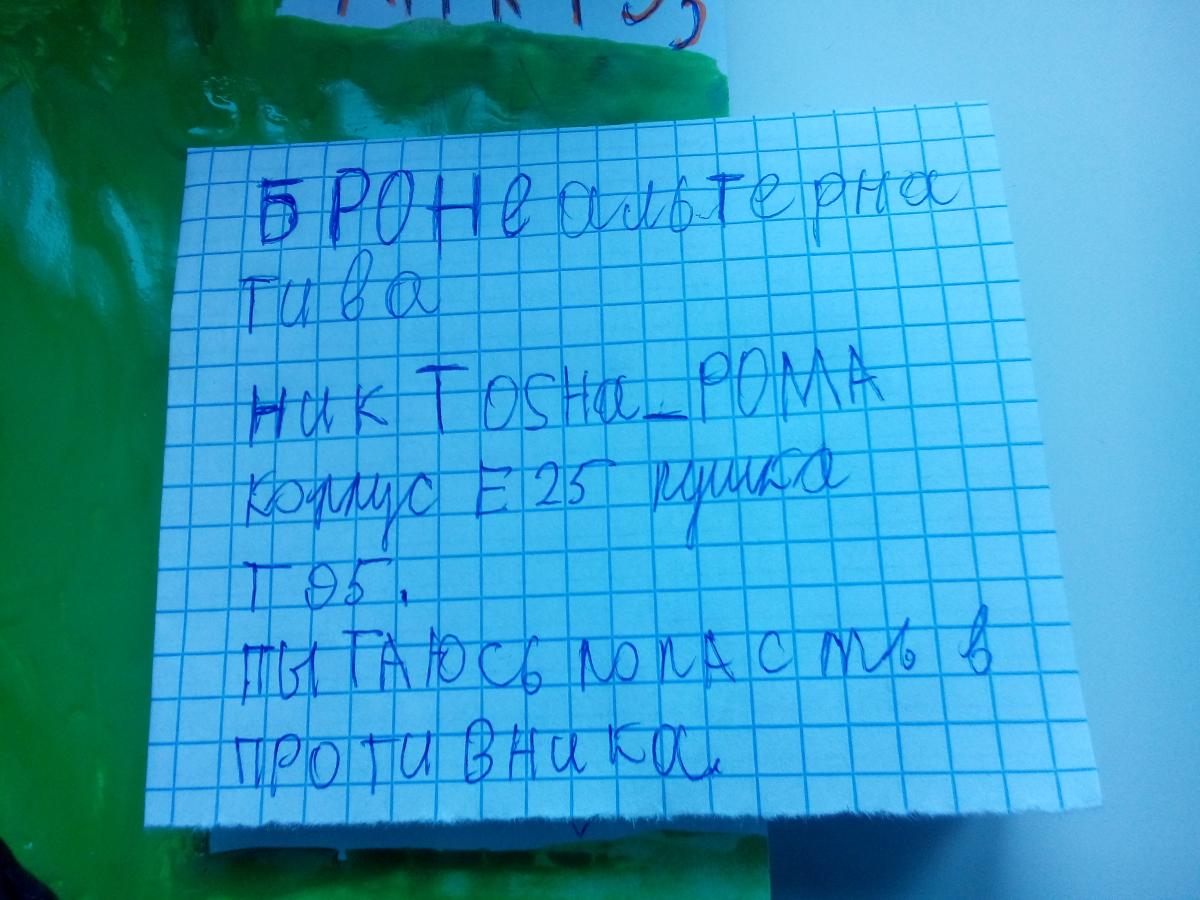 БРОНеальтерна
тива
ник TOSHa_POMA
корпус E25 пушка
T95.
пыТАЮСЬ попАсть в
противника.